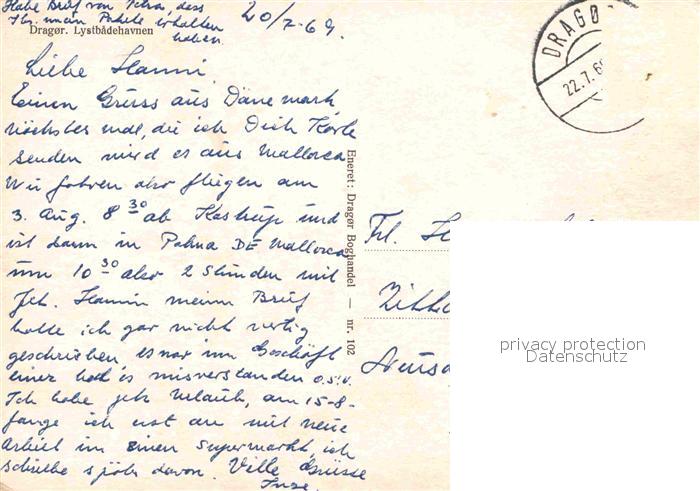 Habe Brief von Petra, dass
Ihr mein Pakete erhalten
haben.
20/7-69.
Dragør. Lystbådehavnen
DRAGØ
22.7.69
Liebe Hanni,
Einen Grüss aus Dänemark,
nöchstes mal, die ich Dich Karte
senden wird es aus Mallorca
Wir fahren also fliegen am
3. Aug. 8 30 ab Kastrup und
ist dann in Palma DE Mallorca
um 10 30 also 2 Stunden mit
Jet. Hanni meinen Brief
hatte ich gar nicht vertig
geschrieben, es war im Geschäft
einer hat es misverstanden o.s.v.
Ich habe jetz Urlaub, am 15-8-
fange ich erst an mit neue
Arbeit im einen Supermarkt, ich
schreibe spöter davon. Ville Grüsse
Inze.
Eneret: Dragør Boghandel — nr. 102
Frl.
privacy protection
Datenschutz